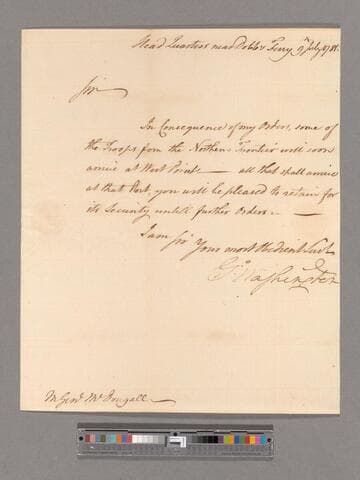 Head Quarters near Dobb's Ferry 9th July 1781.
Sir
In Consequence of my Orders, some of
the Troops from the Northern Frontier will soon
arrive at West Point — all that shall arrive
at that Post, you will be pleased to retain for
its Security untill further Orders. —
I am Sir Your most Obedient Servt
Go Washington
M Genl McDougall —